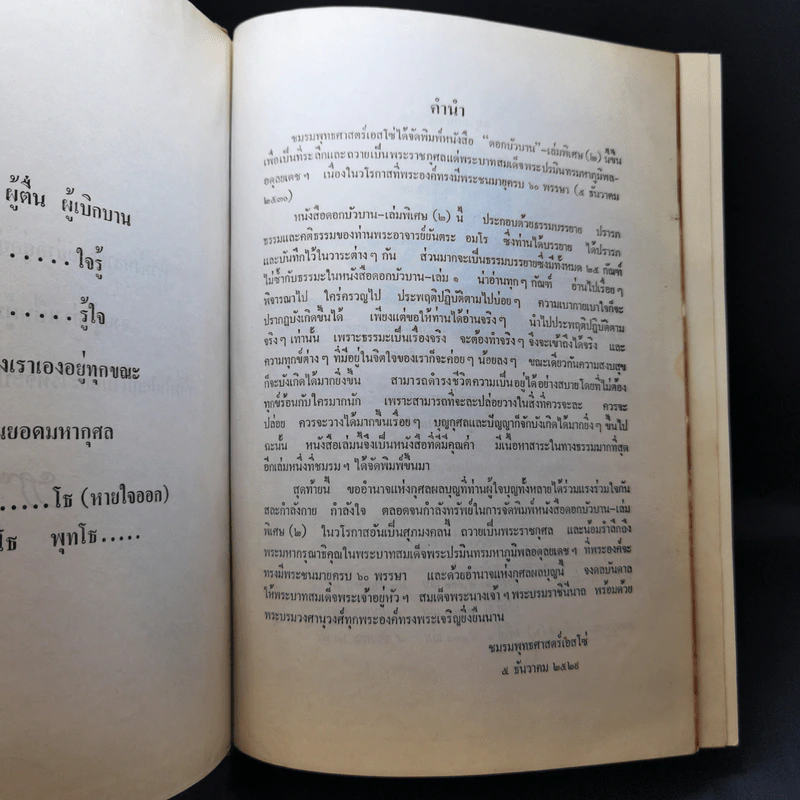 ผู้ตื่น ผู้เบิกบาน
.......ใจรู้
.......รู้ใจ
งเราเองอยู่ทุกขณะ
นยอดมหากุศล
.....โธ (หายใจออก)
โธ พุทโธ.....
คำนำ
ชมรมพุทธศาสตร์เอสโซ่ได้จัดพิมพ์หนังสือ “ดอกบัวบาน”-เล่มพิเศษ (๒) นี้ขึ้น
เพื่อเป็นที่ระลึกและถวายเป็นพระราชกุศลแด่พระบาทสมเด็จพระปรมินทรมหาภูมิพล-
อดุลยเดชฯ เนื่องในวโรกาสที่พระองค์ทรงมีพระชนมายุครบ ๖๐ พรรษา (๕ ธันวาคม
๒๕๓๐)
หนังสือดอกบัวบาน-เล่มพิเศษ (๒) นี้ ประกอบด้วยธรรมบรรยาย ปรารภ
ธรรมและคติธรรมของท่านพระอาจารย์ยันตระ อมโร ซึ่งท่านได้บรรยาย ได้ปรารภ
และบันทึกไว้ในวาระต่างๆ กัน ส่วนมากจะเป็นธรรมบรรยายซึ่งมีทั้งหมด ๒๕ กัณฑ์
ไม่ซ้ำกับธรรมะในหนังสือดอกบัวบาน-เล่ม ๑ น่าอ่านทุกๆ กัณฑ์ อ่านไปเรื่อยๆ
พิจารณาไป ใคร่ครวญไป ประพฤติปฏิบัติตามไปบ่อยๆ ความเบากายเบาใจก็จะ
ปรากฏบังเกิดขึ้นได้ เพียงแต่ขอให้ท่านได้อ่านจริงๆ นำไปประพฤติปฏิบัติตาม
จริงๆ เท่านั้น เพราะธรรมะเป็นเรื่องจริง จะต้องทำจริงๆ จึงจะเข้าถึงได้จริง และ
ความทุกข์ต่างๆ ที่มีอยู่ในจิตใจของเราก็จะค่อยๆ น้อยลงๆ ขณะเดียวกันความสงบสุข
ก็จะบังเกิดได้มากยิ่งขึ้น สามารถดำรงชีวิตความเป็นอยู่ได้อย่างสบายโดยที่ไม่ต้อง
ทุกข์ร้อนกับใครมากนัก เพราะสามารถที่จะปล่อยวางในสิ่งที่ควรจะละ ควรจะ
ปล่อย ควรจะวางได้มากขึ้นเรื่อยๆ บุญกุศลและปัญญาก็จักบังเกิดได้มากยิ่งๆ ขึ้นไป
ฉะนั้น หนังสือเล่มนี้จึงเป็นหนังสือที่ดีมีคุณค่า มีเนื้อหาสาระในทางธรรมมากที่สุด
อีกเล่มหนึ่งที่ชมรม ฯ ได้จัดพิมพ์ขึ้นมา
สุดท้ายนี้ ขออำนาจแห่งกุศลผลบุญที่ท่านผู้ใจบุญทั้งหลายได้ร่วมแรงร่วมใจกัน
สละกำลังกาย กำลังใจ ตลอดจนกำลังทรัพย์ในการจัดพิมพ์หนังสือดอกบัวบาน-เล่ม
พิเศษ (๒) ในวโรกาสอันเป็นศุภมงคลนี้ ถวายเป็นพระราชกุศล และน้อมรำลึกถึง
พระมหากรุณาธิคุณในพระบาทสมเด็จพระปรมินทรมหาภูมิพลอดุลยเดชฯ ที่พระองค์จะ
ทรงมีพระชนมายุครบ ๖๐ พรรษา และด้วยอำนาจแห่งกุศลผลบุญนี้ จงดลบันดาล
ให้พระบาทสมเด็จพระเจ้าอยู่หัวฯ สมเด็จพระนางเจ้าฯ พระบรมราชินีนาถ พร้อมด้วย
พระบรมวงศานุวงศ์ทุกพระองค์ทรงพระเจริญยิ่งยืนนาน
ชมรมพุทธศาสตร์เอสโซ่
๕ ธันวาคม ๒๕๒๙